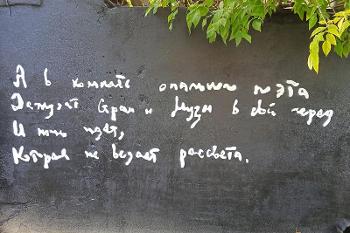 А в комнате опального поэта
Дежурят страх и Муза в свой черёд
И ночь идёт,
Которая не ведает рассвета.